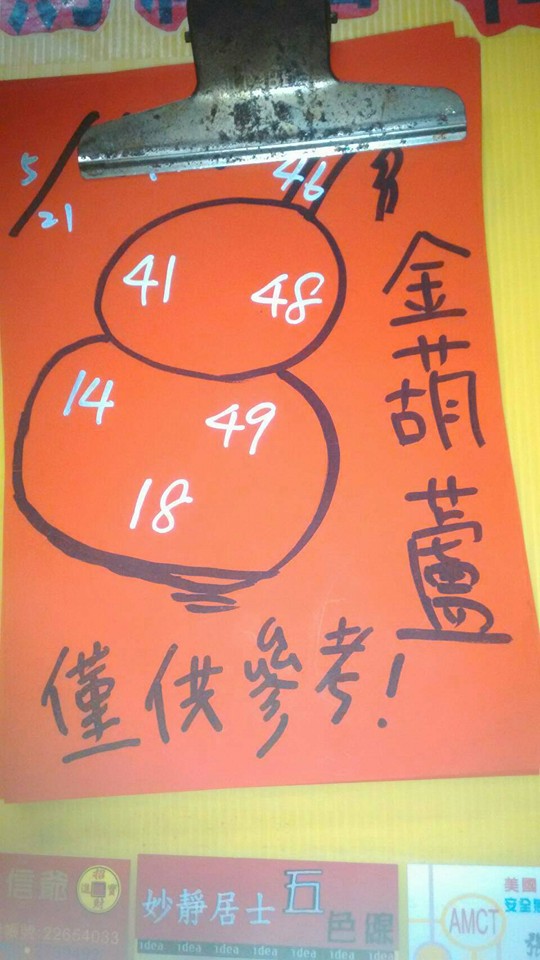 5/21
46
41 48
14 49
18
金葫蘆
僅供參考!
信爺
22654033
招財進寶
妙靜居士 五色線
idea idea idea idea idea idea idea
美國
安全
AMCT